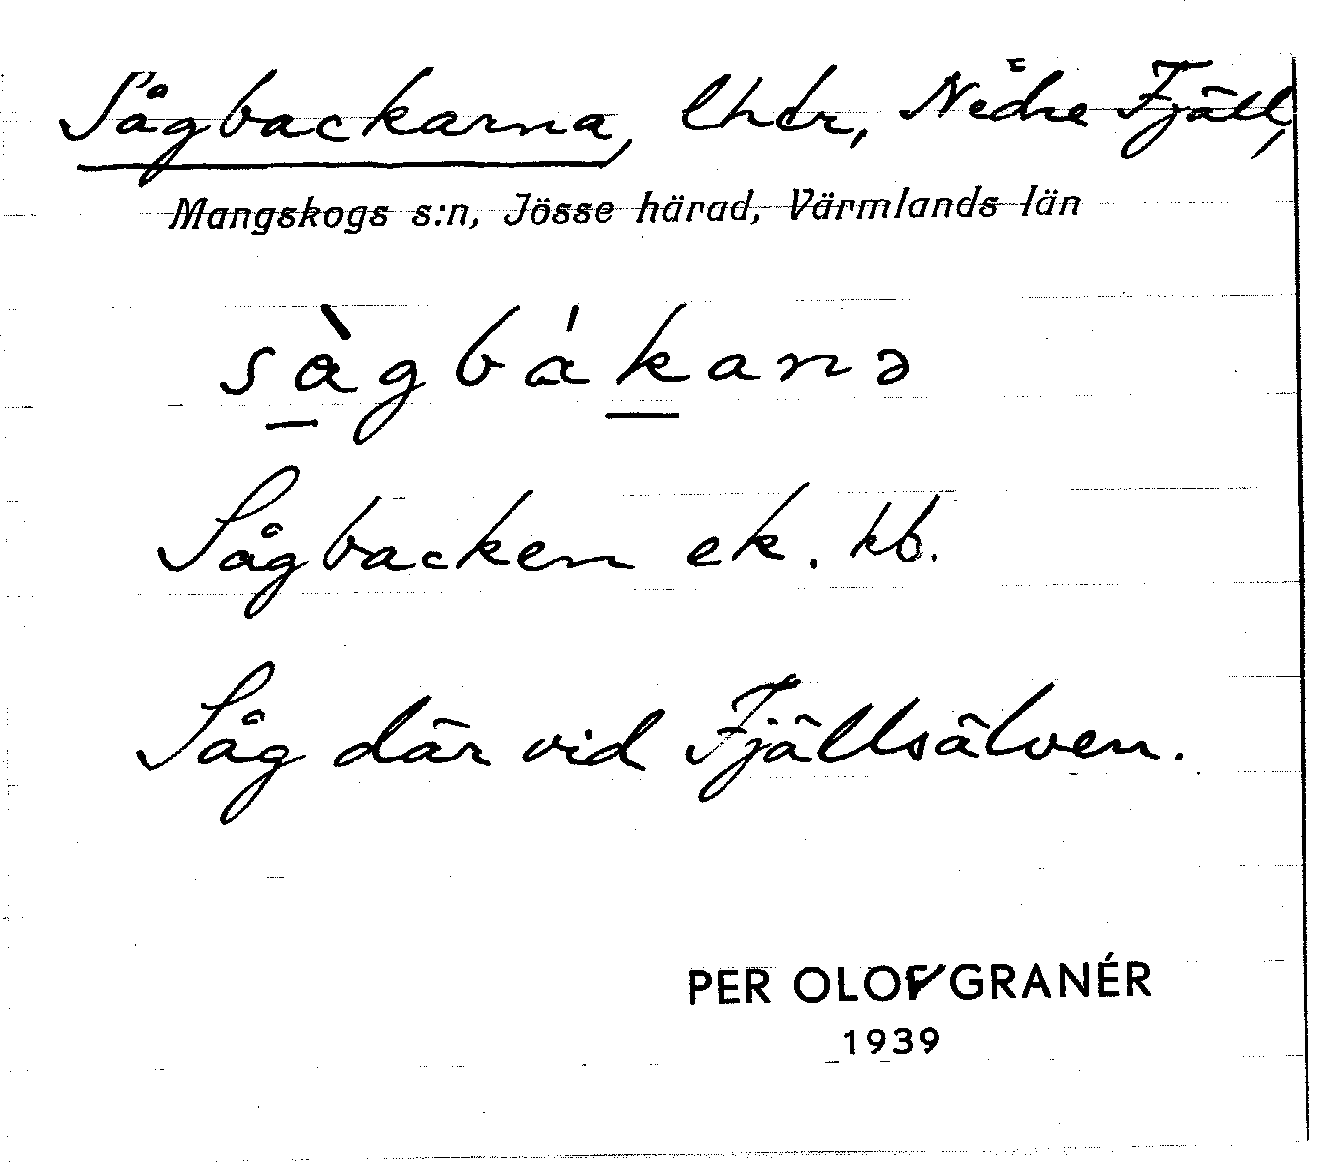 Sågbackarna, lhdr, Nedre Fjäll,
Mangskogs s:n, Jösse härad, Värmlands län
sàgbákanə
Sågbacken ek. kb.
Såg där vid Fjällsälven.
PER OLOF GRANÉR
1939